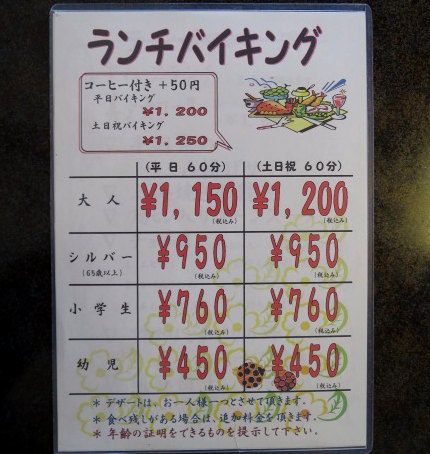 ランチバイキング
コーヒー付き +50円
平日バイキング
¥1,200
土日祝バイキング
¥1,250
(平 日 60分) (土日祝 60分)
大 人 ¥1,150 (税込み) ¥1,200 (税込み)
シルバー ¥950 (税込み) ¥950 (税込み)
(65歳以上)
小 学 生 ¥760 (税込み) ¥760 (税込み)
幼 児 ¥450 (税込み) ¥450 (税込み)
* デザートは、お一人様一つとさせて頂きます。
* 食べ残しがある場合は、追加料金を頂きます。
* 年齢の証明をできるものを提示して下さい。